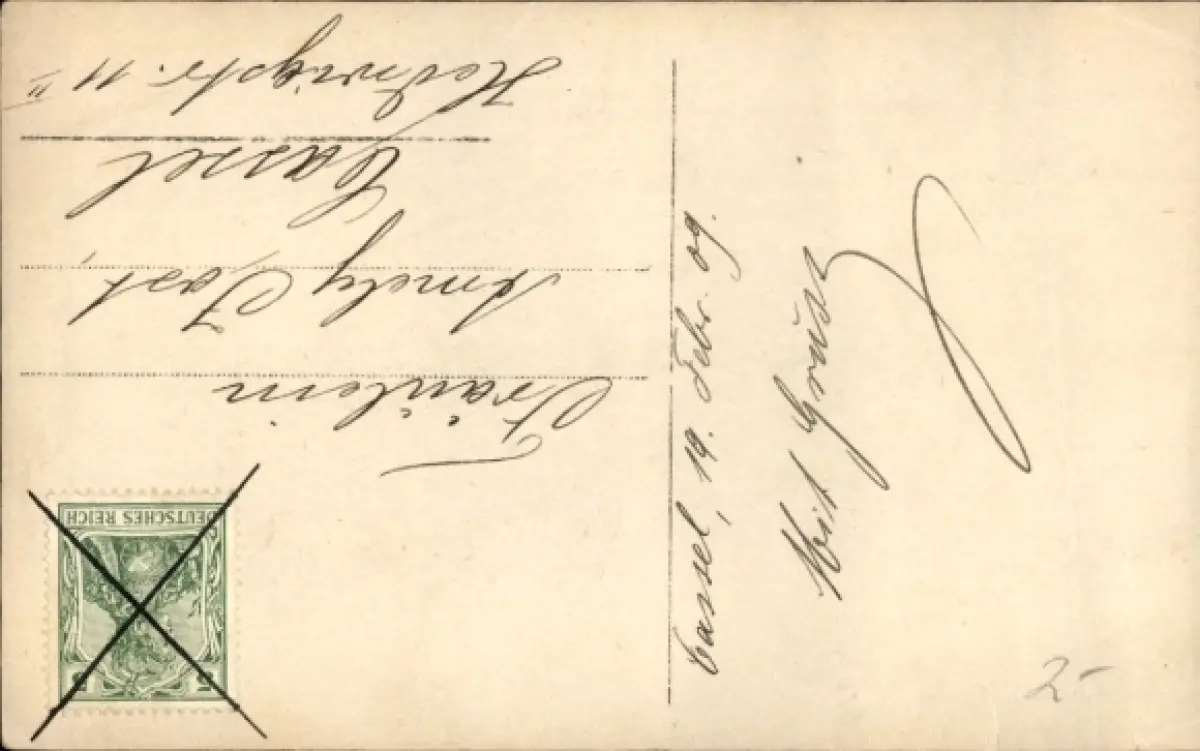 Cassel, 19. Febr. 09.
Mit Gruß
Fräulein
Amely Jost,
Cassel
Hedwigstr. 11 II
DEUTSCHES REICH
5 5
2-